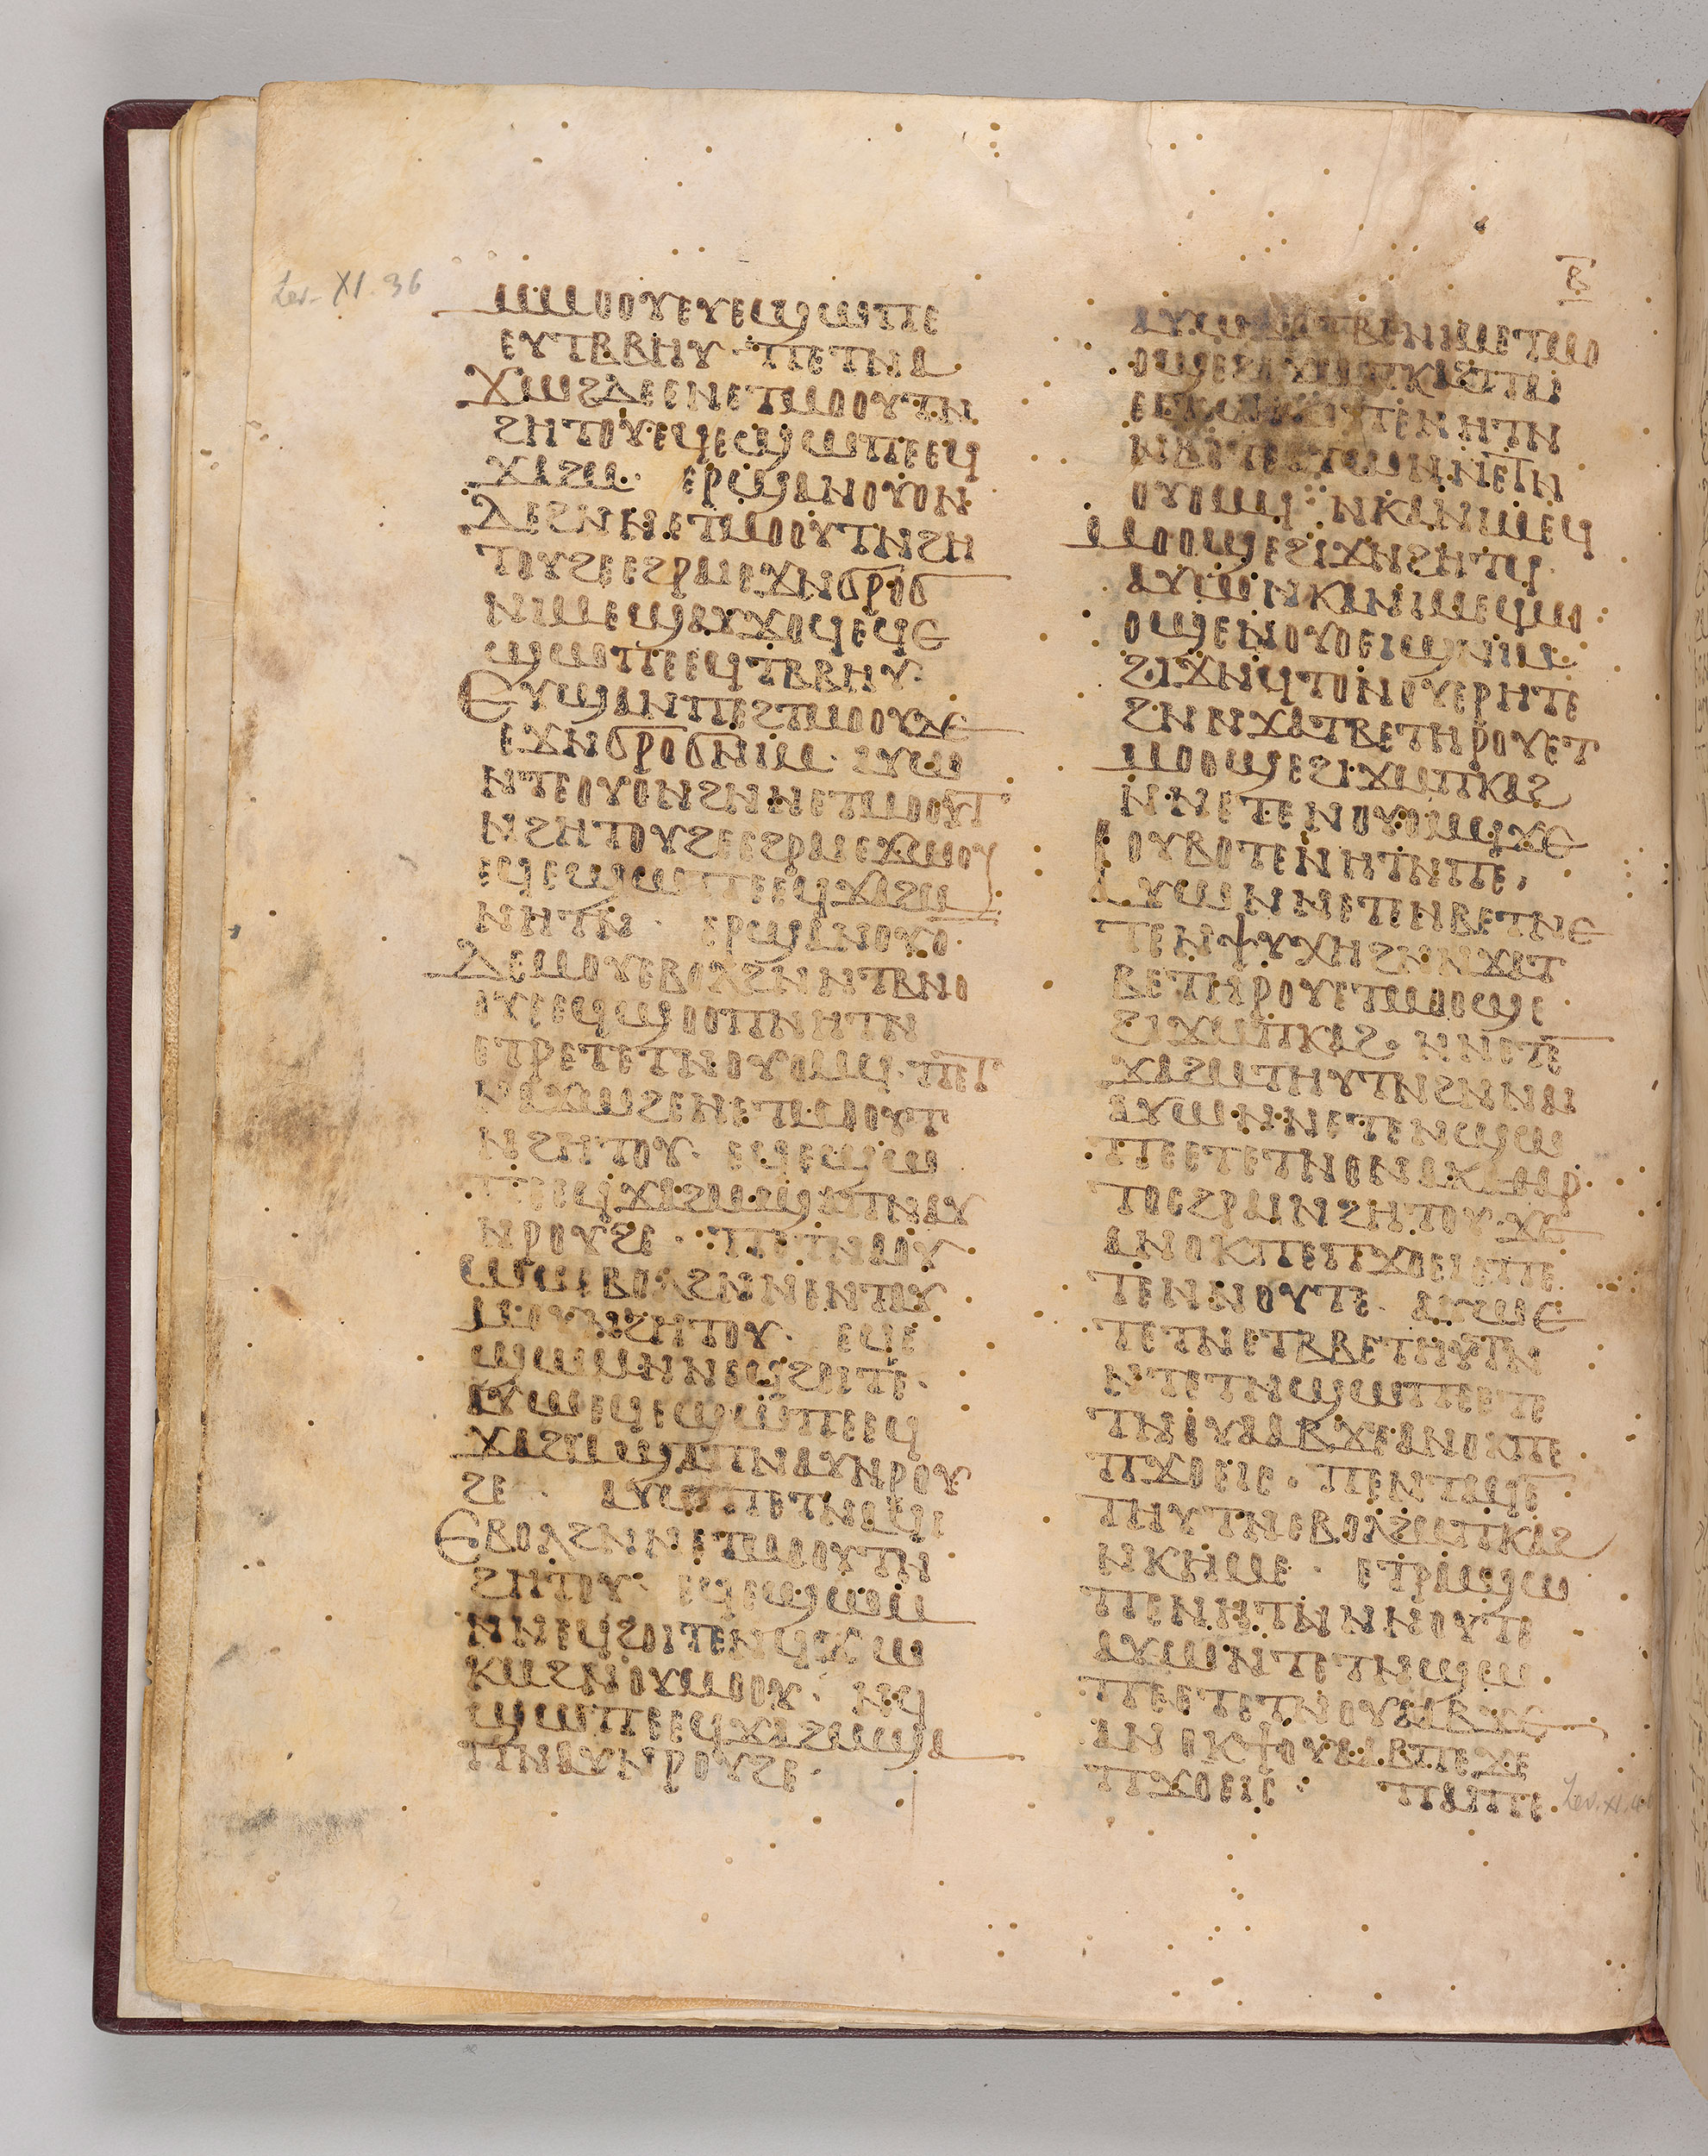 Lev. XI. 36
ⲙⲙⲟⲟⲩⲉⲩⲉϣⲱⲡⲉ
ⲉⲩⲧⲃⲃⲏⲩ · ⲡⲉⲧⲛⲁ
ϫⲱϩⲇⲉⲉⲛⲉⲧⲙⲟⲟⲩⲧⲛ
ϩⲏⲧⲟⲩ·ⲉϥⲉϣⲱⲡⲉⲉϥ
ϫⲁϩⲙ· ⲉⲣϣⲁⲛⲟⲩⲟⲛ
ⲇⲉϩⲛⲛⲉⲧⲙⲟⲟⲩⲧⲛϩⲏ
ⲧⲟⲩϩⲉⲉϩⲣⲁⲓⲉϫⲛϭⲣⲟϭ
ⲛⲓⲙⲉϣⲁⲩϫⲟϥⲉϥⲉ
ϣⲱⲡⲉⲉϥⲧⲃⲃⲏⲩ·
ⲉⲩϣⲁⲛⲡⲉϩⲧⲙⲟⲟⲩⲇⲉ
ⲉϫⲛϭⲣⲟϭⲛⲓⲙ· ⲁⲩⲱ
ⲛⲧⲉⲟⲩⲟⲛϩⲛⲛⲉⲧⲙⲟⲟⲩⲧ
ⲛϩⲏⲧⲟⲩϩⲉⲉϩⲣⲁⲓⲉϫⲱⲟⲩ
ⲉϥⲉϣⲱⲡⲉⲉϥϫⲁϩⲙ
ⲛⲏⲧⲛ· ⲉⲣϣⲁⲛⲟⲩⲟ
ⲇⲉⲙⲟⲩⲉⲃⲟⲗϩⲛⲛⲧⲃⲛⲟ
ⲟⲩⲉⲉϥϣⲟⲟⲡⲛⲏⲧⲛ
ⲉⲧⲣⲉⲧⲉⲧⲛⲟⲩⲟⲙϥ·ⲡⲉⲧ
ⲛⲁϫⲱϩⲉⲛⲉⲧⲙⲟⲟⲩⲧ
ⲛϩⲏⲧⲟⲩ· ⲉϥⲉϣⲱ
ⲡⲉⲉϥϫⲁϩⲙϣⲁⲡⲛⲁⲩ
ⲛⲣⲟⲩϩⲉ· ⲡⲉⲧⲛⲁⲟⲩ
ⲱⲙⲉⲃⲟⲗϩⲛⲛⲉⲛⲧⲁⲩ
ⲙⲟⲩⲛϩⲏⲧⲟⲩ· ⲉϥⲉ
ϣⲱⲙⲛⲛⲉϥϩⲟⲓⲧⲉ·
ⲁⲩⲱⲉϥⲉϣⲱⲡⲉⲉϥ
ϫⲁϩⲙϣⲁⲡⲛⲁⲩⲛⲣⲟⲩ
ϩⲉ· ⲁⲩⲱⲡⲉⲧⲛⲁϥⲓ
ⲉⲃⲟⲗϩⲛⲛⲉⲧⲙⲟⲟⲩⲧⲛ
ϩⲏⲧⲟⲩ· ⲉϥⲉϣⲱⲙ
ⲛⲛⲉϥϩⲟⲓⲧⲉⲛϥϫⲱ
ⲕⲙϩⲛⲟⲩⲙⲟⲟⲩ· ⲛϥ
ϣⲱⲡⲉⲉϥϫⲁϩⲙϣⲁ
ⲡⲛⲁⲩⲛⲣⲟⲩϩⲉ·
ⲃ
ⲁⲩⲱϫⲁⲧⲃⲉⲛⲓⲙⲉⲧⲙⲟ
ⲟϣⲉϩⲓϫⲙⲡⲕⲁϩⲡⲁⲓ
ⲛⲃⲟⲧⲉⲧⲱⲛⲛⲉⲧⲛ
ⲟⲩⲟⲙϥ· ⲛⲕⲁⲛⲓⲙⲉϥ
ⲙⲟⲟϣⲉϩⲓϫⲛϩⲏⲧϥ·
ⲁⲩⲱⲛⲕⲁⲛⲓⲙⲉϥⲙⲟ
ⲟϣⲉⲛⲟⲩⲟⲉⲓϣⲛⲓⲙ
ϩⲓϫⲛϥⲧⲟⲛⲟⲩⲉⲣⲏⲧⲉ
ϩⲛⲛϫⲁⲧⲃⲉⲧⲏⲣⲟⲩⲉⲧ
ⲙⲟⲟϣⲉϩⲓϫⲙⲡⲕⲁϩ
ⲛⲛⲉⲧⲉⲛⲟⲩⲟⲙϥϫⲉ
ⲟⲩⲃⲟⲧⲉⲛⲏⲧⲛⲡⲉ,
ⲁⲩⲱⲛⲛⲉⲧⲛⲃⲉⲧⲛⲉ
ⲧⲉⲛⲯⲩⲭⲏϩⲛⲛϫⲁⲧ
ⲃⲉⲧⲏⲣⲟⲩⲉⲧⲙⲟⲟϣⲉ
ϩⲓϫⲙⲡⲕⲁϩ· ⲛⲛⲉⲧⲉ
ϫⲁϩⲙⲧⲏⲩⲧⲛϩⲛⲛⲁⲓ
ⲁⲩⲱⲛⲛⲉⲧⲉⲛϣⲱ
ⲡⲉⲉⲧⲉⲧⲛⲟⲛⲁⲕⲁⲑⲁⲣ
ⲧⲟⲥϩⲣⲁⲓⲛϩⲏⲧⲟⲩ·ϫⲉ
ⲁⲛⲟⲕⲡⲉⲡϫⲟⲉⲓⲥⲡⲉ
ⲧⲉⲛⲛⲟⲩⲧⲉ· ⲁⲩⲱⲉ
ⲧⲉⲧⲛⲉⲧⲃⲃⲉⲧⲏⲩⲧⲛ
ⲛⲧⲉⲧⲛϣⲱⲡⲉⲉⲧⲉ
ⲧⲛⲟⲩⲁⲁⲃϫⲉⲁⲛⲟⲕⲡⲉ
ⲡϫⲟⲉⲓⲥ· ⲡⲉⲛⲧⲁϥⲉ
ⲧⲏⲩⲧⲛⲉⲃⲟⲗϩⲙⲡⲕⲁϩ
ⲛⲕⲏⲙⲉ· ⲉⲧⲣⲁϣⲱ
ⲡⲉⲛⲏⲧⲛⲛⲛⲟⲩⲧⲉ
ⲁⲩⲱⲛⲧⲉⲧⲛϣⲱ
ⲡⲉⲉⲧⲉⲧⲛⲟⲩⲁⲁⲃϫⲉ
ⲁⲛⲟⲕϯⲟⲩⲁⲁⲃⲡⲉϫⲉ
ⲡϫⲟⲉⲓⲥ· ⲡⲁⲓⲡⲉ